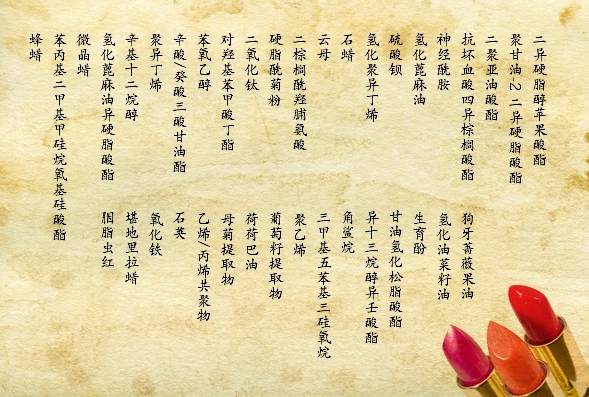 二异硬脂醇苹果酸酯
聚甘油-2二异硬脂酸酯
二聚亚油酸酯
抗坏血酸四异棕榈酸酯
神经酰胺
氢化蓖麻油
硫酸钡
氢化聚异丁烯
石蜡
云母
二棕榈酰羟脯氨酸
硬脂酰菊粉
二氧化钛
对羟基苯甲酸丁酯
苯氧乙醇
辛酸/癸酸三酸甘油酯
聚异丁烯
辛基十二烷醇
氢化蓖麻油异硬脂酸酯
微晶蜡
苯丙基二甲基甲硅烷氧基硅酸酯
蜂蜡
狗牙蔷薇果油
氢化油菜籽油
生育酚
甘油氢化松脂酸酯
异十三烷醇异壬酸酯
角鲨烷
三甲基五苯基三硅氧烷
聚乙烯
葡萄籽提取物
荷荷巴油
母菊提取物
乙烯/丙烯共聚物
石英
氧化铁
堪地里拉蜡
胭脂虫红